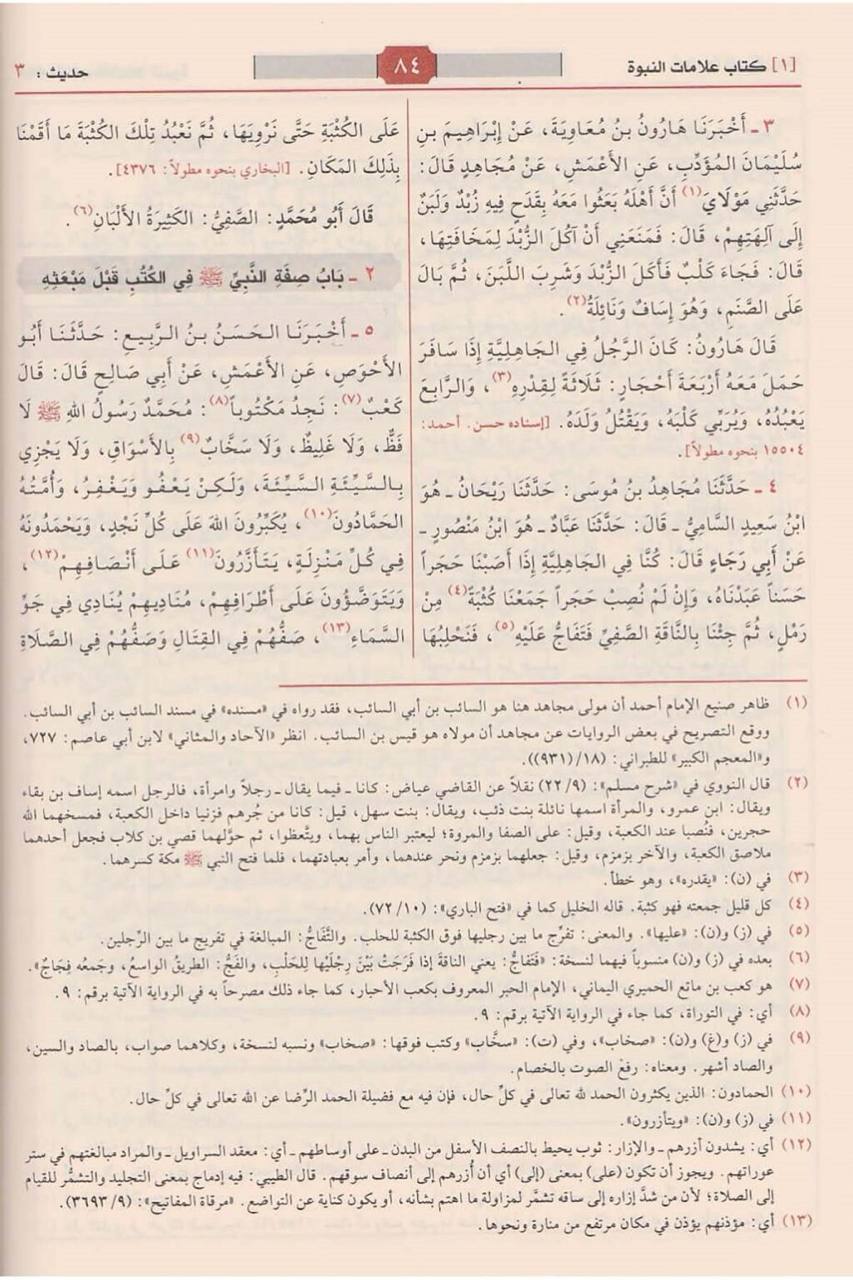 [١] كتاب علامات النبوة
٨٤
حديث : ٣
٣ ـ أَخْبَرَنَا هَارُونُ بْنُ مُعَاوِيَةَ، عَنْ إِبْرَاهِيمَ بنِ
سُلَيْمَانَ المُؤَدِّبِ، عَنِ الأَعْمَشِ، عَنْ مُجَاهِدٍ قَالَ:
حَدَّثَنِي مَوْلَايَ(١) أَنَّ أَهْلَهُ بَعَثُوا مَعَهُ بِقَدَحٍ فِيهِ زُبْدٌ وَلَبَنٌ
إِلَى آلِهَتِهِمْ، قَالَ: فَمَنَعَنِي أَنْ آكُلَ الزُّبْدَ لِمَخَافَتِهَا،
قَالَ: فَجَاءَ كَلْبٌ فَأَكَلَ الزُّبْدَ وَشَرِبَ اللَّبَنَ، ثُمَّ بَالَ
عَلَى الصَّنَمِ، وَهُوَ إِسَافٌ وَنَائِلَةُ(٢).
قَالَ هَارُونُ: كَانَ الرَّجُلُ فِي الجَاهِلِيَّةِ إِذَا سَافَرَ
حَمَلَ مَعَهُ أَرْبَعَةَ أَحْجَارٍ: ثَلَاثَةً لِقِدْرِهِ(٣)، وَالرَّابِعَ
يَعْبُدُهُ، وَيُرَبِّي كَلْبَهُ، وَيَقْتُلُ وَلَدَهُ. [إسناده حسن. أحمد:
١٥٥٠٤ بنحوه مطولاً].
٤ ـ حَدَّثَنَا مُجَاهِدُ بْنُ مُوسَى: حَدَّثَنَا رَيْحَانُ ـ هُوَ
ابْنُ سَعِيدٍ السَّامِيُّ ـ قَالَ: حَدَّثَنَا عَبَّادٌ ـ هُوَ ابْنُ مَنْصُورٍ ـ
عَنْ أَبِي رَجَاءٍ قَالَ: كُنَّا فِي الجَاهِلِيَّةِ إِذَا أَصَبْنَا حَجَراً
حَسَناً عَبَدْنَاهُ، وَإِنْ لَمْ نُصِبْ حَجَراً جَمَعْنَا كُثْبَةً(٤) مِنْ
رَمْلٍ، ثُمَّ جِئْنَا بِالنَّاقَةِ الصَّفِيِّ فَتَفَاجُّ عَلَيْهِ(٥)، فَنَحْلِبُهَا
عَلَى الكُثْبَةِ حَتَّى نَرْوِيَهَا، ثُمَّ نَعْبُدُ تِلْكَ الكُثْبَةَ مَا أَقَمْنَا
بِذَلِكَ المَكَانِ. [البخاري بنحوه مطولاً: ٤٣٧٦].
قَالَ أَبُو مُحَمَّدٍ: الصَّفِيُّ: الكَثِيرَةُ الأَلْبَانِ(٦).
٢ ـ بَابُ صِفَةِ النَّبِيِّ ﷺ فِي الكُتُبِ قَبْلَ مَبْعَثِهِ
٥ ـ أَخْبَرَنَا الحَسَنُ بنُ الرَّبِيعِ: حَدَّثَنَا أَبُو
الأَحْوَصِ، عَنِ الأَعْمَشِ، عَنْ أَبِي صَالِحٍ قَالَ: قَالَ
كَعْبٌ(٧): نَجِدُ مَكْتُوباً(٨): مُحَمَّدٌ رَسُولُ اللهِ ﷺ لَا
فَظٌّ، وَلَا غَلِيظٌ، وَلَا سَخَّابٌ(٩) بِالأَسْوَاقِ، وَلَا يَجْزِي
بِالسَّيِّئَةِ السَّيِّئَةَ، وَلَكِنْ يَعْفُو وَيَغْفِرُ، وَأُمَّتُهُ
الحَمَّادُونَ(١٠)، يُكَبِّرُونَ اللهَ عَلَى كُلِّ نَجْدٍ، وَيَحْمَدُونَهُ
فِي كُلِّ مَنْزِلَةٍ، يَتَأَزَّرُونَ(١١) عَلَى أَنْصَافِهِمْ(١٢)،
وَيَتَوَضَّؤُونَ عَلَى أَطْرَافِهِمْ، مُنَادِيهِمْ يُنَادِي فِي جَوِّ
السَّمَاءِ(١٣)، صَفُّهُمْ فِي القِتَالِ وَصَفُّهُمْ فِي الصَّلَاةِ
(١) ظاهر صنيع الإمام أحمد أن مولى مجاهد هنا هو السائب بن أبي السائب، فقد رواه في «مسنده» في مسند السائب بن أبي السائب.
ووقع التصريح في بعض الروايات عن مجاهد أن مولاه هو قيس بن السائب. انظر «الآحاد والمثاني» لابن أبي عاصم: ٧٢٧،
و«المعجم الكبير» للطبراني: (١٨/(٩٣١)).
(٢) قال النووي في «شرح مسلم»: (٢٢/٩) نقلاً عن القاضي عياض: كانا ـ فيما يقال ـ رجلاً وامرأة، فالرجل اسمه إساف بن بقاء
ويقال: ابن عمرو، والمرأة اسمها نائلة بنت ذئب، ويقال: بنت سهل، قيل: كانا من جُرهم فزنيا داخل الكعبة، فمسخهما الله
حجرين، فنُصبا عند الكعبة، وقيل: على الصفا والمروة؛ ليعتبر الناس بهما، ويتَّعظوا، ثم حوَّلهما قصي بن كلاب فجعل أحدهما
ملاصق الكعبة، والآخر بزمزم، وقيل: جعلهما بزمزم ونحر عندهما، وأمر بعبادتهما، فلما فتح النبي ﷺ مكة كسرهما.
(٣) في (ن): «يقدره»، وهو خطأ.
(٤) كل قليل جمعته فهو كثبة. قاله الخليل كما في «فتح الباري»: (٧٢/١٠).
(٥) في (ز) و(ن): «عليها». والمعنى: تفرِّج ما بين رجليها فوق الكثبة للحلب. والتَّفَاجُّ: المبالغة في تفريج ما بين الرِّجلين.
(٦) بعده في (ز) و(ن) منسوباً فيهما لنسخة: «فَتَفاجُّ: يعني الناقةَ إذا فَرَجَتْ بَيْنَ رِجْلَيْها لِلحَلْبِ، والفَجُّ: الطريقُ الواسعُ، وجَمعُه فِجَاجٌ».
(٧) هو كعب بن ماتع الحميري اليماني، الإمام الحبر المعروف بكعب الأحبار، كما جاء ذلك مصرحاً به في الرواية الآتية برقم: ٩.
(٨) أي: في التوراة، كما جاء في الرواية الآتية برقم: ٩.
(٩) في (ز) و(غ) و(ن): «صخاب»، وفي (ت): «سخَّاب» وكتب فوقها: «صخاب» ونسبه لنسخة، وكلاهما صواب، بالصاد والسين،
والصاد أشهر. ومعناه: رفعُ الصوت بالخصام.
(١٠) الحمادون: الذين يكثرون الحمد لله تعالى في كلِّ حال، فإن فيه مع فضيلة الحمد الرِّضا عن الله تعالى في كلِّ حال.
(١١) في (ز) و(ن): «ويتأزرون».
(١٢) أي: يشدون أزرهم ـ والإزار: ثوب يحيط بالنصف الأسفل من البدن ـ على أوساطهم ـ أي: معقد السراويل ـ والمراد مبالغتهم في ستر
عوراتهم. ويجوز أن تكون (على) بمعنى (إلى) أي أن أُزرهم إلى أنصاف سوقهم. قال الطيبي: فيه إدماج بمعنى التجليد والتشمُّر للقيام
إلى الصلاة؛ لأن من شدَّ إزاره إلى ساقه تشمَّر لمزاولة ما اهتم بشأنه، أو يكون كناية عن التواضع. «مرقاة المفاتيح»: (٣٦٩٣/٩).
(١٣) أي: مؤذنهم يؤذن في مكان مرتفع من منارة ونحوها.